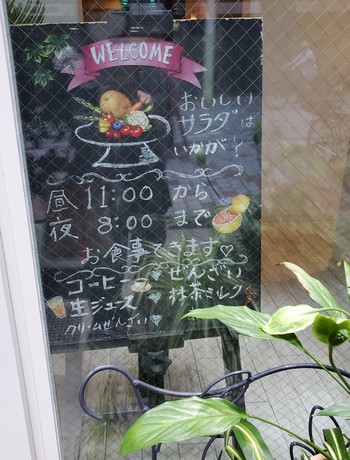 WELCOME
おいしい
サラダは
いかが!
昼 11:00 から
夜 8:00 まで
お食事できます♡
コーヒー ♥ ぜんざい
生ジュース ♥ 抹茶ミルク
クリームぜんざい ♥